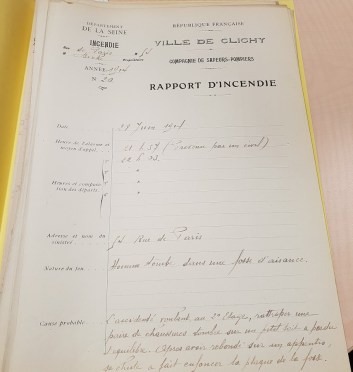 DÉPARTEMENT
DE LA SEINE
INCENDIE
Rue de Paris
52
ANNÉE 1904
N° 29
RÉPUBLIQUE FRANÇAISE
VILLE DE CLICHY
COMPAGNIE DE SAPEURS-POMPIERS
RAPPORT D'INCENDIE
Date
28 Juin 1904
Heure de l'alarme et
moyen d'appel.
(Personne par un
Heures et composi-
tion des départs.
Adresse et nom du
sinistré
52 Rue de Paris
Nature du feu
Homme tombé dans une fosse d'aisance.
Cause probable
L'accidenté voulant, au 2e étage, rattraper une
paire de chaussures tombée sur un petit toit a perdu
l'équilibre. Après avoir rebondi sur un appentis,
sa chute a fait enfoncer la plaque de la fosse.